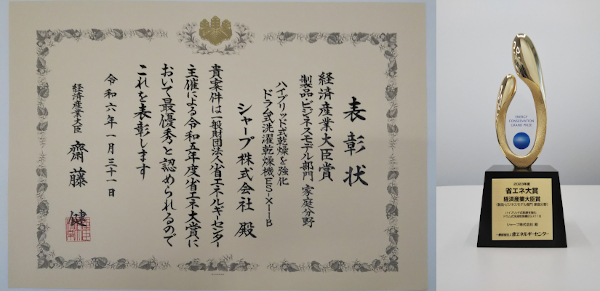 表彰状
経済産業大臣賞
製品・ビジネスモデル部門 家庭分野
ハイブリッド式乾燥を強化
ドラム式洗濯乾燥機 ES-X11B
シャープ株式会社 殿
貴案件は一般財団法人省エネルギーセンター
主催による令和五年度省エネ大賞に
おいて最優秀と認められるので
これを表彰します
令和六年一月三十一日
経済産業大臣 齋藤 健
ENERGY
CONSERVATION
GRAND PRIZE
2023年度
省エネ大賞
経済産業大臣賞
シャープ株式会社 殿
一般財団法人 省エネルギーセンター